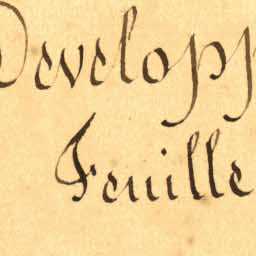 Developp
Feuille